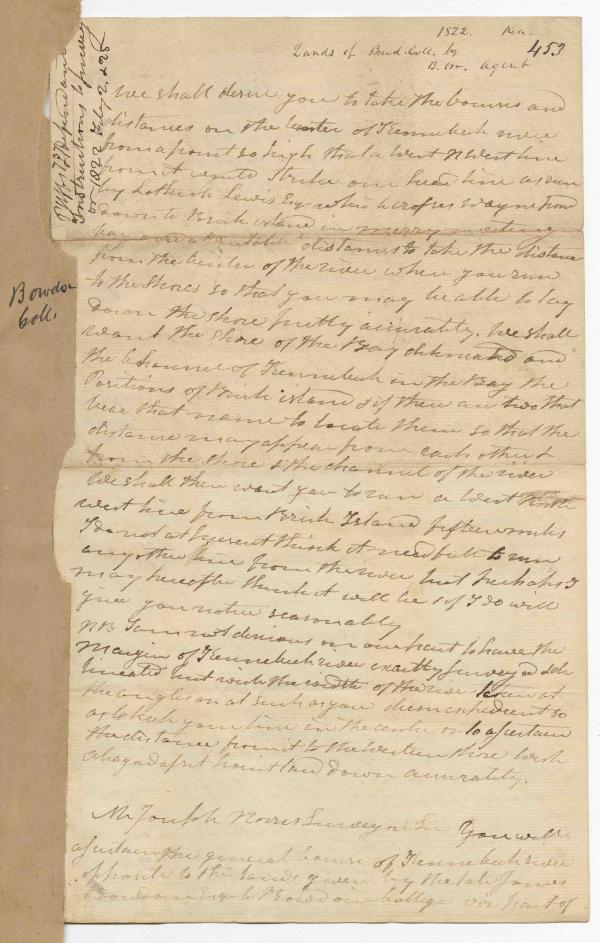 1822. Ken.
453
Lands of Bowd. Coll. by
B. Orr. agent
Instructions to
or 1822 July 2.
Bowdoin
Coll.
We shall desire you to take the courses and
distances on the Center of Kennebeck river
from a point so high that a West N West line
from it would Strike our head line as run
by Lothrop Lewis Esq which crosses
down to Brick island in merry meeting
bay and distances to take the distance
from the Center of the river when you run
to the Shores so that you may be able to lay
down the Shore pretty accurately. We shall
want the Shore of the Bay deliniated and
the Channel of Kennebeck in the Bay the
Positions of Brick island & if there are two that
bear that name to locate them so that the
distance may appear from each other &
from the shore & the channel of the river
We shall then want you to run a West North
west line from Brick Island fifteen miles
I do not at present think it needfull to run
any other line from the river but perhaps I
may hereafter think it will be & if I do will
give you notice seasonably
NB I am not desirous on our part to have the
Margin of Kennebeck river exactly surveyed & de
lineated but wish the width of the river taken at
the angles or at such as you deem expedient so
as to keep your line in the center or to ascertain
the distance from it to the Western shore Wish
Abagadaset point laid down accurately.
Mr Joseph Norris Surveyor Sir You will
ascertain the general course of Kennebeck river
opposite to the lands given by the late James
Bowdoin Esq to Bowdoin College viz part of